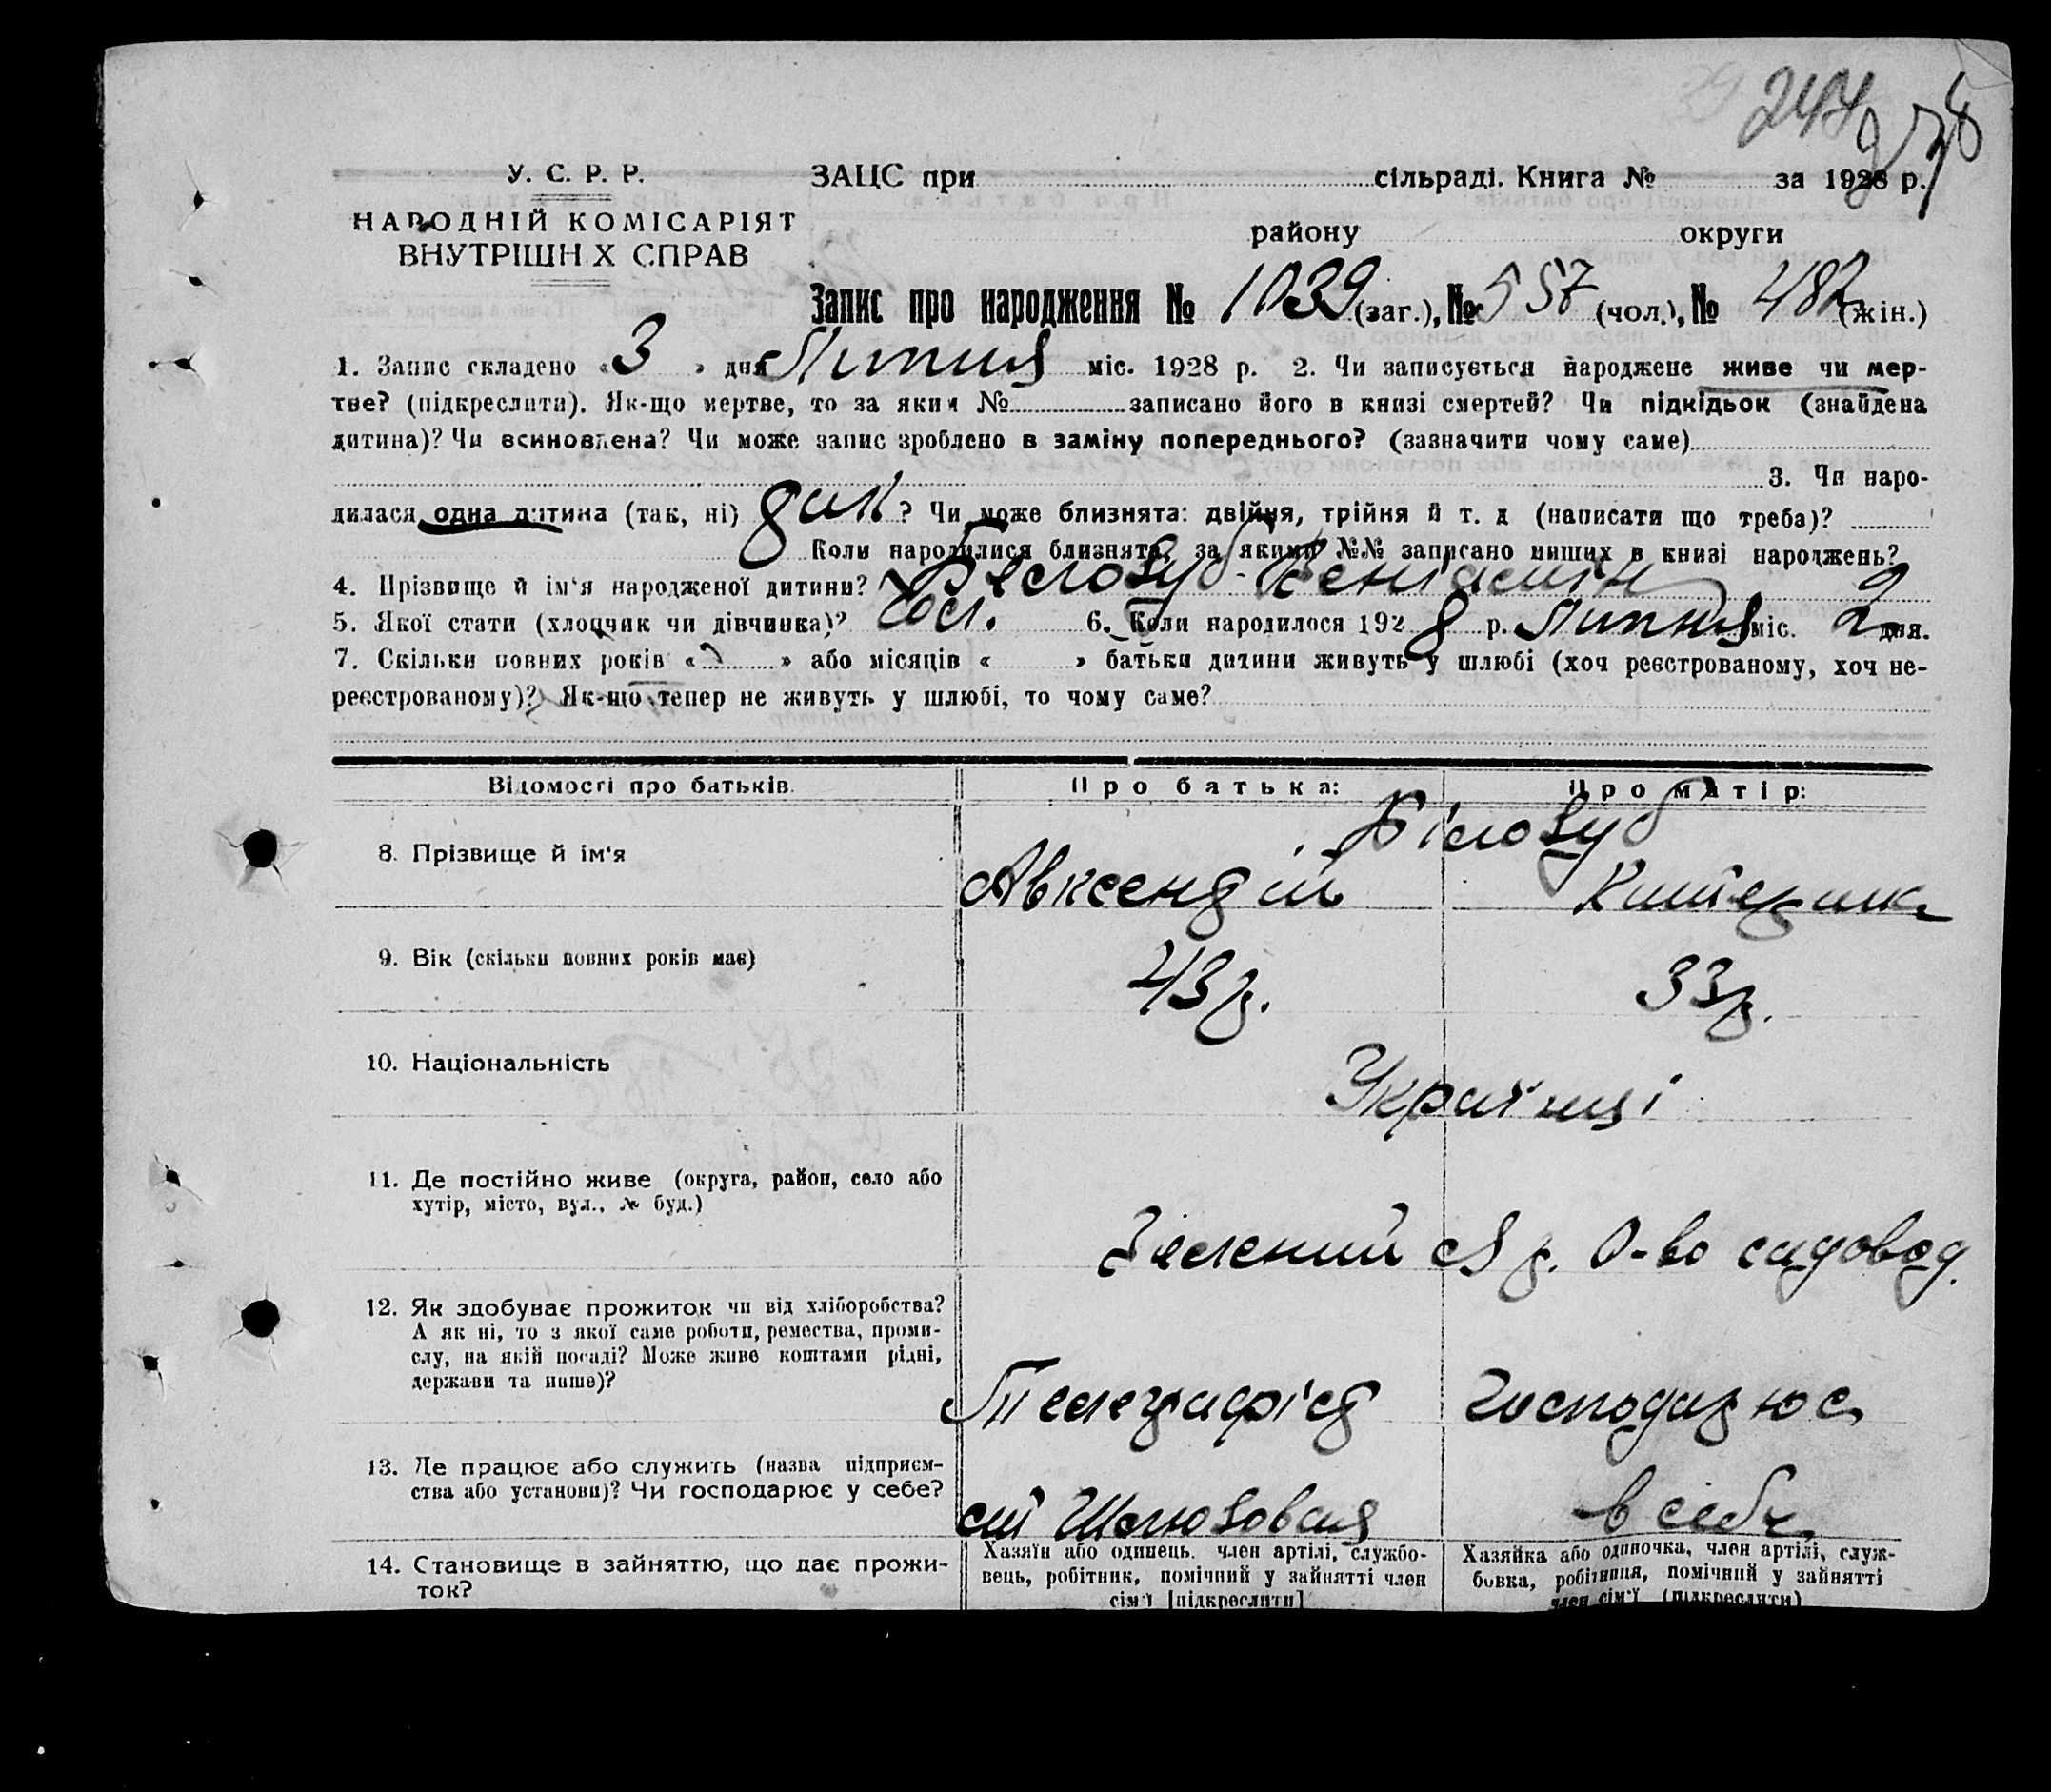 244
278
У. С. Р. Р.
НАРОДНІЙ КОМІСАРІЯТ
ВНУТРІШН Х СПРАВ
ЗАЦС при сільраді. Книга № за 1928 р.
району округи
Запис про народження № 1039 (заг.), № 557 (чол.), № 482 (жін.)
1. Запис складено «3» дня Липня міс. 1928 р. 2. Чи записується народжене живе чи мер-
тве? (підкреслити). Як-що мертве, то за яким № записано його в книзі смертей? Чи підкідьок (знайдена
дитина)? Чи всиновлена? Чи може запис зроблено в заміну попереднього? (зазначити чому саме)
3. Чи наро-
дилася одна дитина (так, ні) так ? Чи може близнята: двійня, трійня й т. д (написати що треба)?
Коли народилися близнята, за якими №№ записано инших в книзі народжень?
4. Прізвище й ім‘я народженої дитини? Белозуб Веніамін
5. Якої стати (хлопчик чи дівчинка)? чол. 6. Коли народилося 1928 р. Липня міс. 2 дня.
7. Скільки повних років « » або місяців « » батьки дитини живуть у шлюбі (хоч реєстрованому, хоч не-
реєстрованому)? Як-що тепер не живуть у шлюбі, то чому саме?
Відомості про батьків. Про батька: Про матір:
8. Прізвище й ім‘я Білозуб
Авксендій
9. Вік (скільки повних років має) 43 р. 33 р.
10. Національність Українці
11. Де постійно живе (округа, район, село або
хутір, місто, вул., № буд.)
Зелений Яр. О-во садовод.
12. Як здобуває прожиток чи від хліборобства?
А як ні, то з якої саме роботи, ремества, проми-
слу, на якій посаді? Може живе коштами рідні,
держави та инше)?
Телеграфіст Господарює
13. Де працює або служить (назва підприєм-
ства або установи)? Чи господарює у себе?
ст Шлюзовая в себе
14. Становище в зайняттю, що дає прожи-
ток?
Хазяїн або одинець, член артілі, службо-
вець, робітник, помічний у зайнятті член
сім‘ї [підкреслити]
Хазяйка або одиночка, член артілі, служ-
бовка, робітниця, помічний у зайнятті
член сім‘ї (підкреслити)